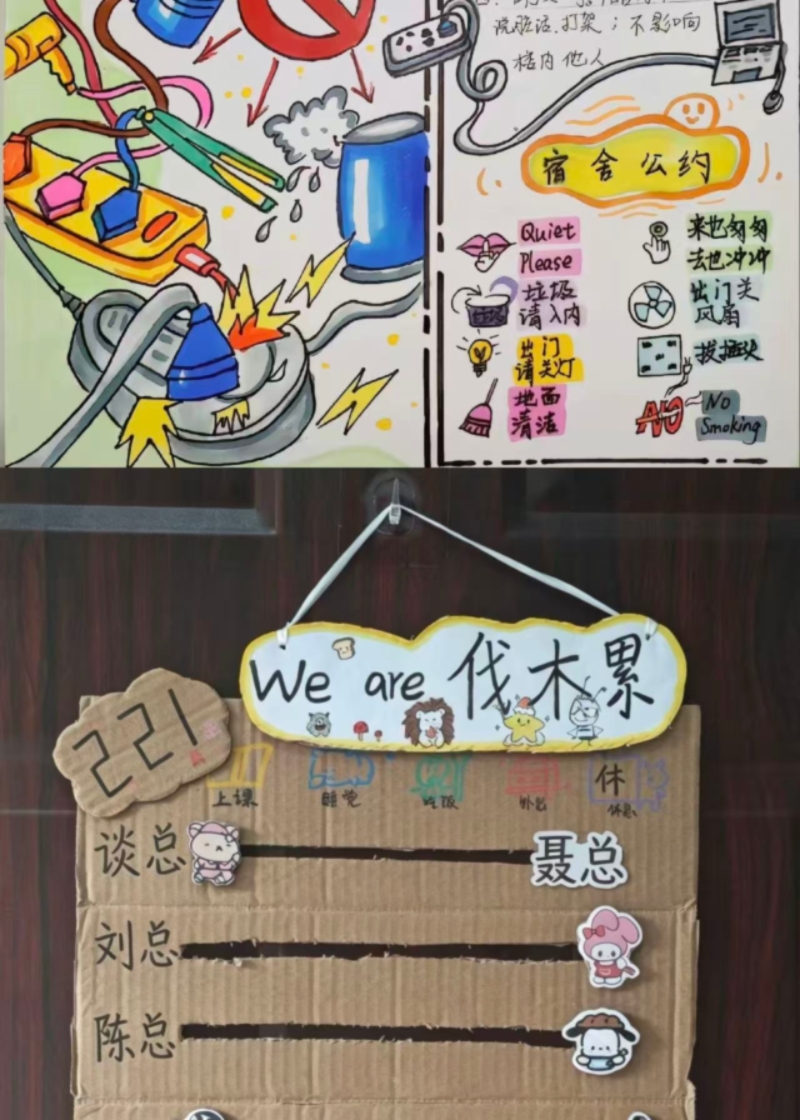 说脏话、打架；不影响
楼内他人
宿舍公约
Quiet
Please
来也匆匆
去也冲冲
垃圾
请入内
出门关
风扇
出门
请关灯
拔插头
地面
清洁
No
Smoking
NO
We are 伐木累
221
上课
睡觉
吃饭
外出
休
休息
谈总
聂总
刘总
陈总